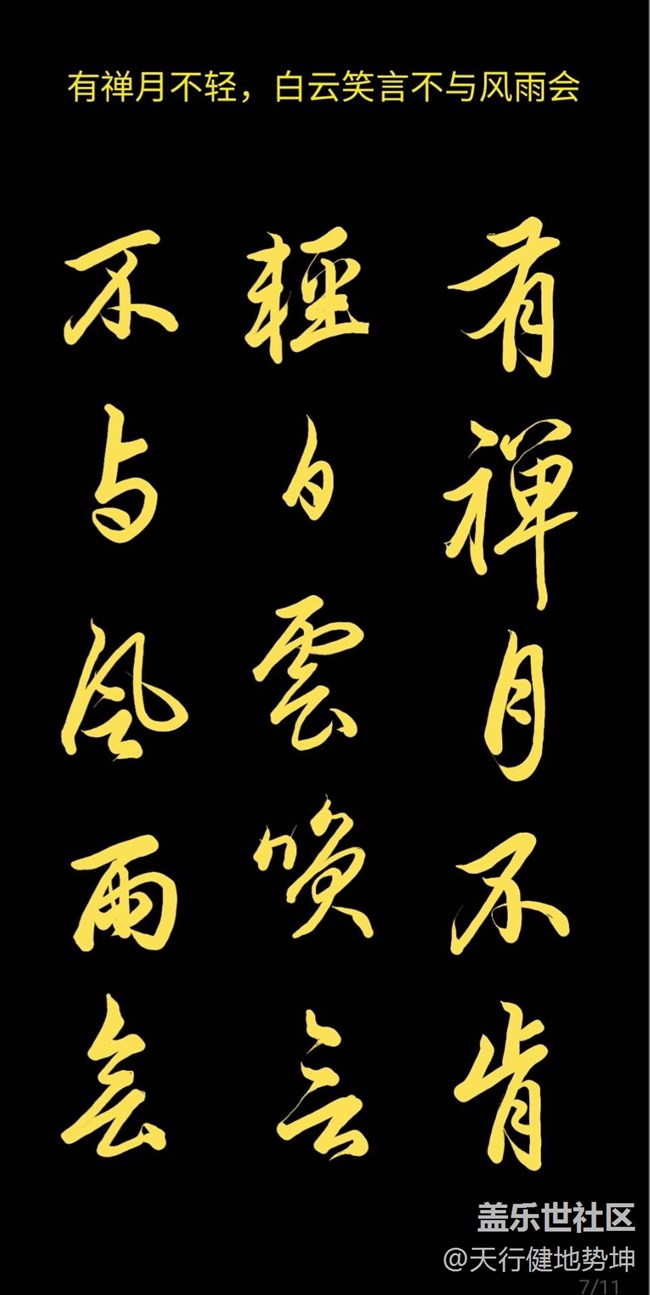 有禅月不轻，白云笑言不与风雨会
有禅月不肯
輕白雲唤言
不与风雨会
盖乐世社区
@天行健地势坤
7/11